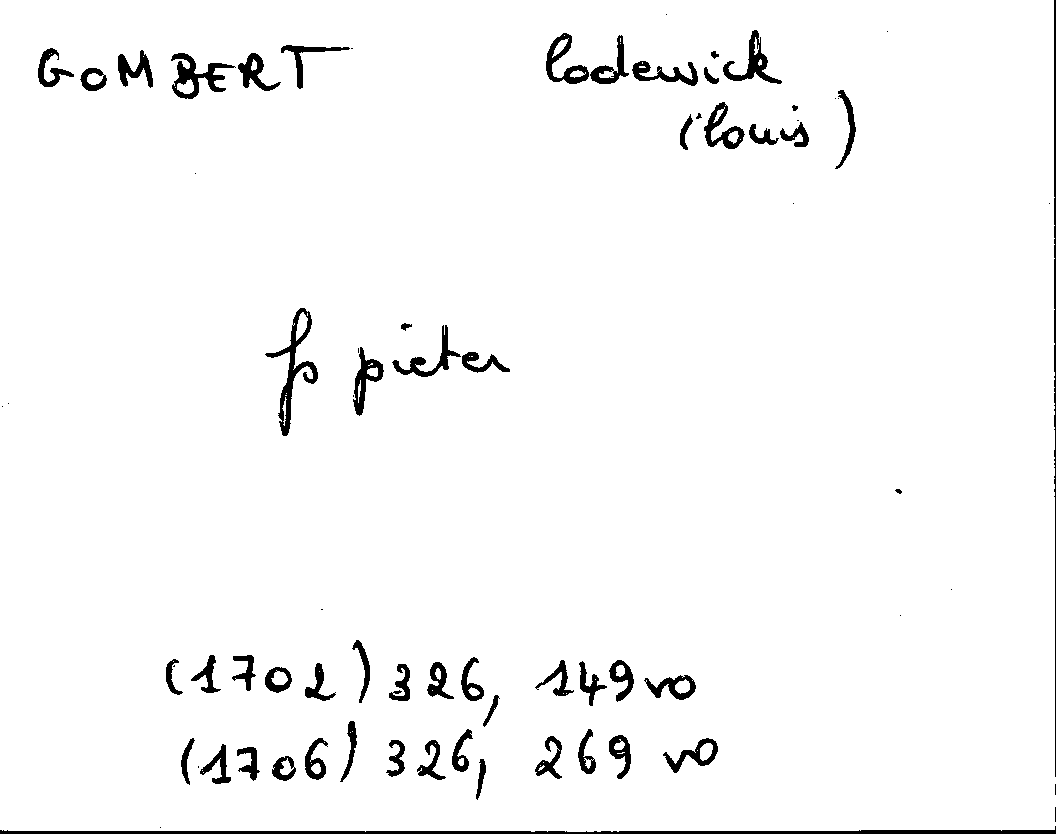 GOMBERT lodewick
(louis)
fs pieter
(1702) 326, 149 vo
(1706) 326, 269 vo